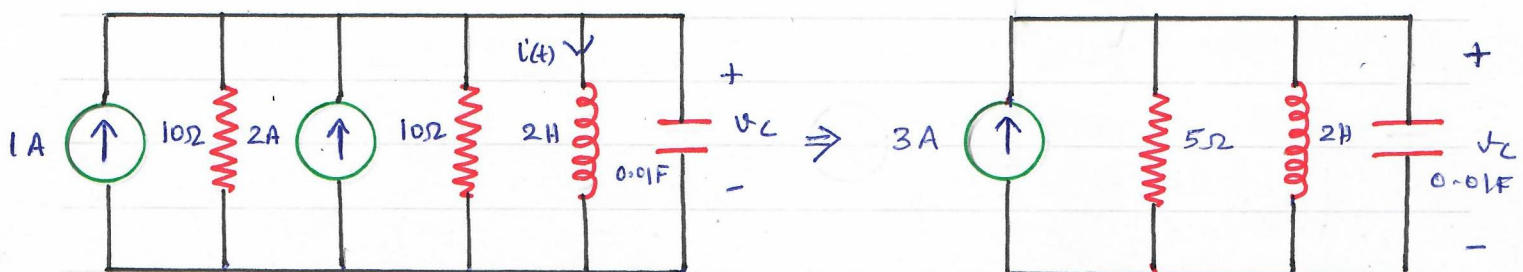 i(t)
+
+
1A 10Ω 2A 10Ω 2H 0.01F vc ⇒ 3A 5Ω 2H vc
0.01F
-
-